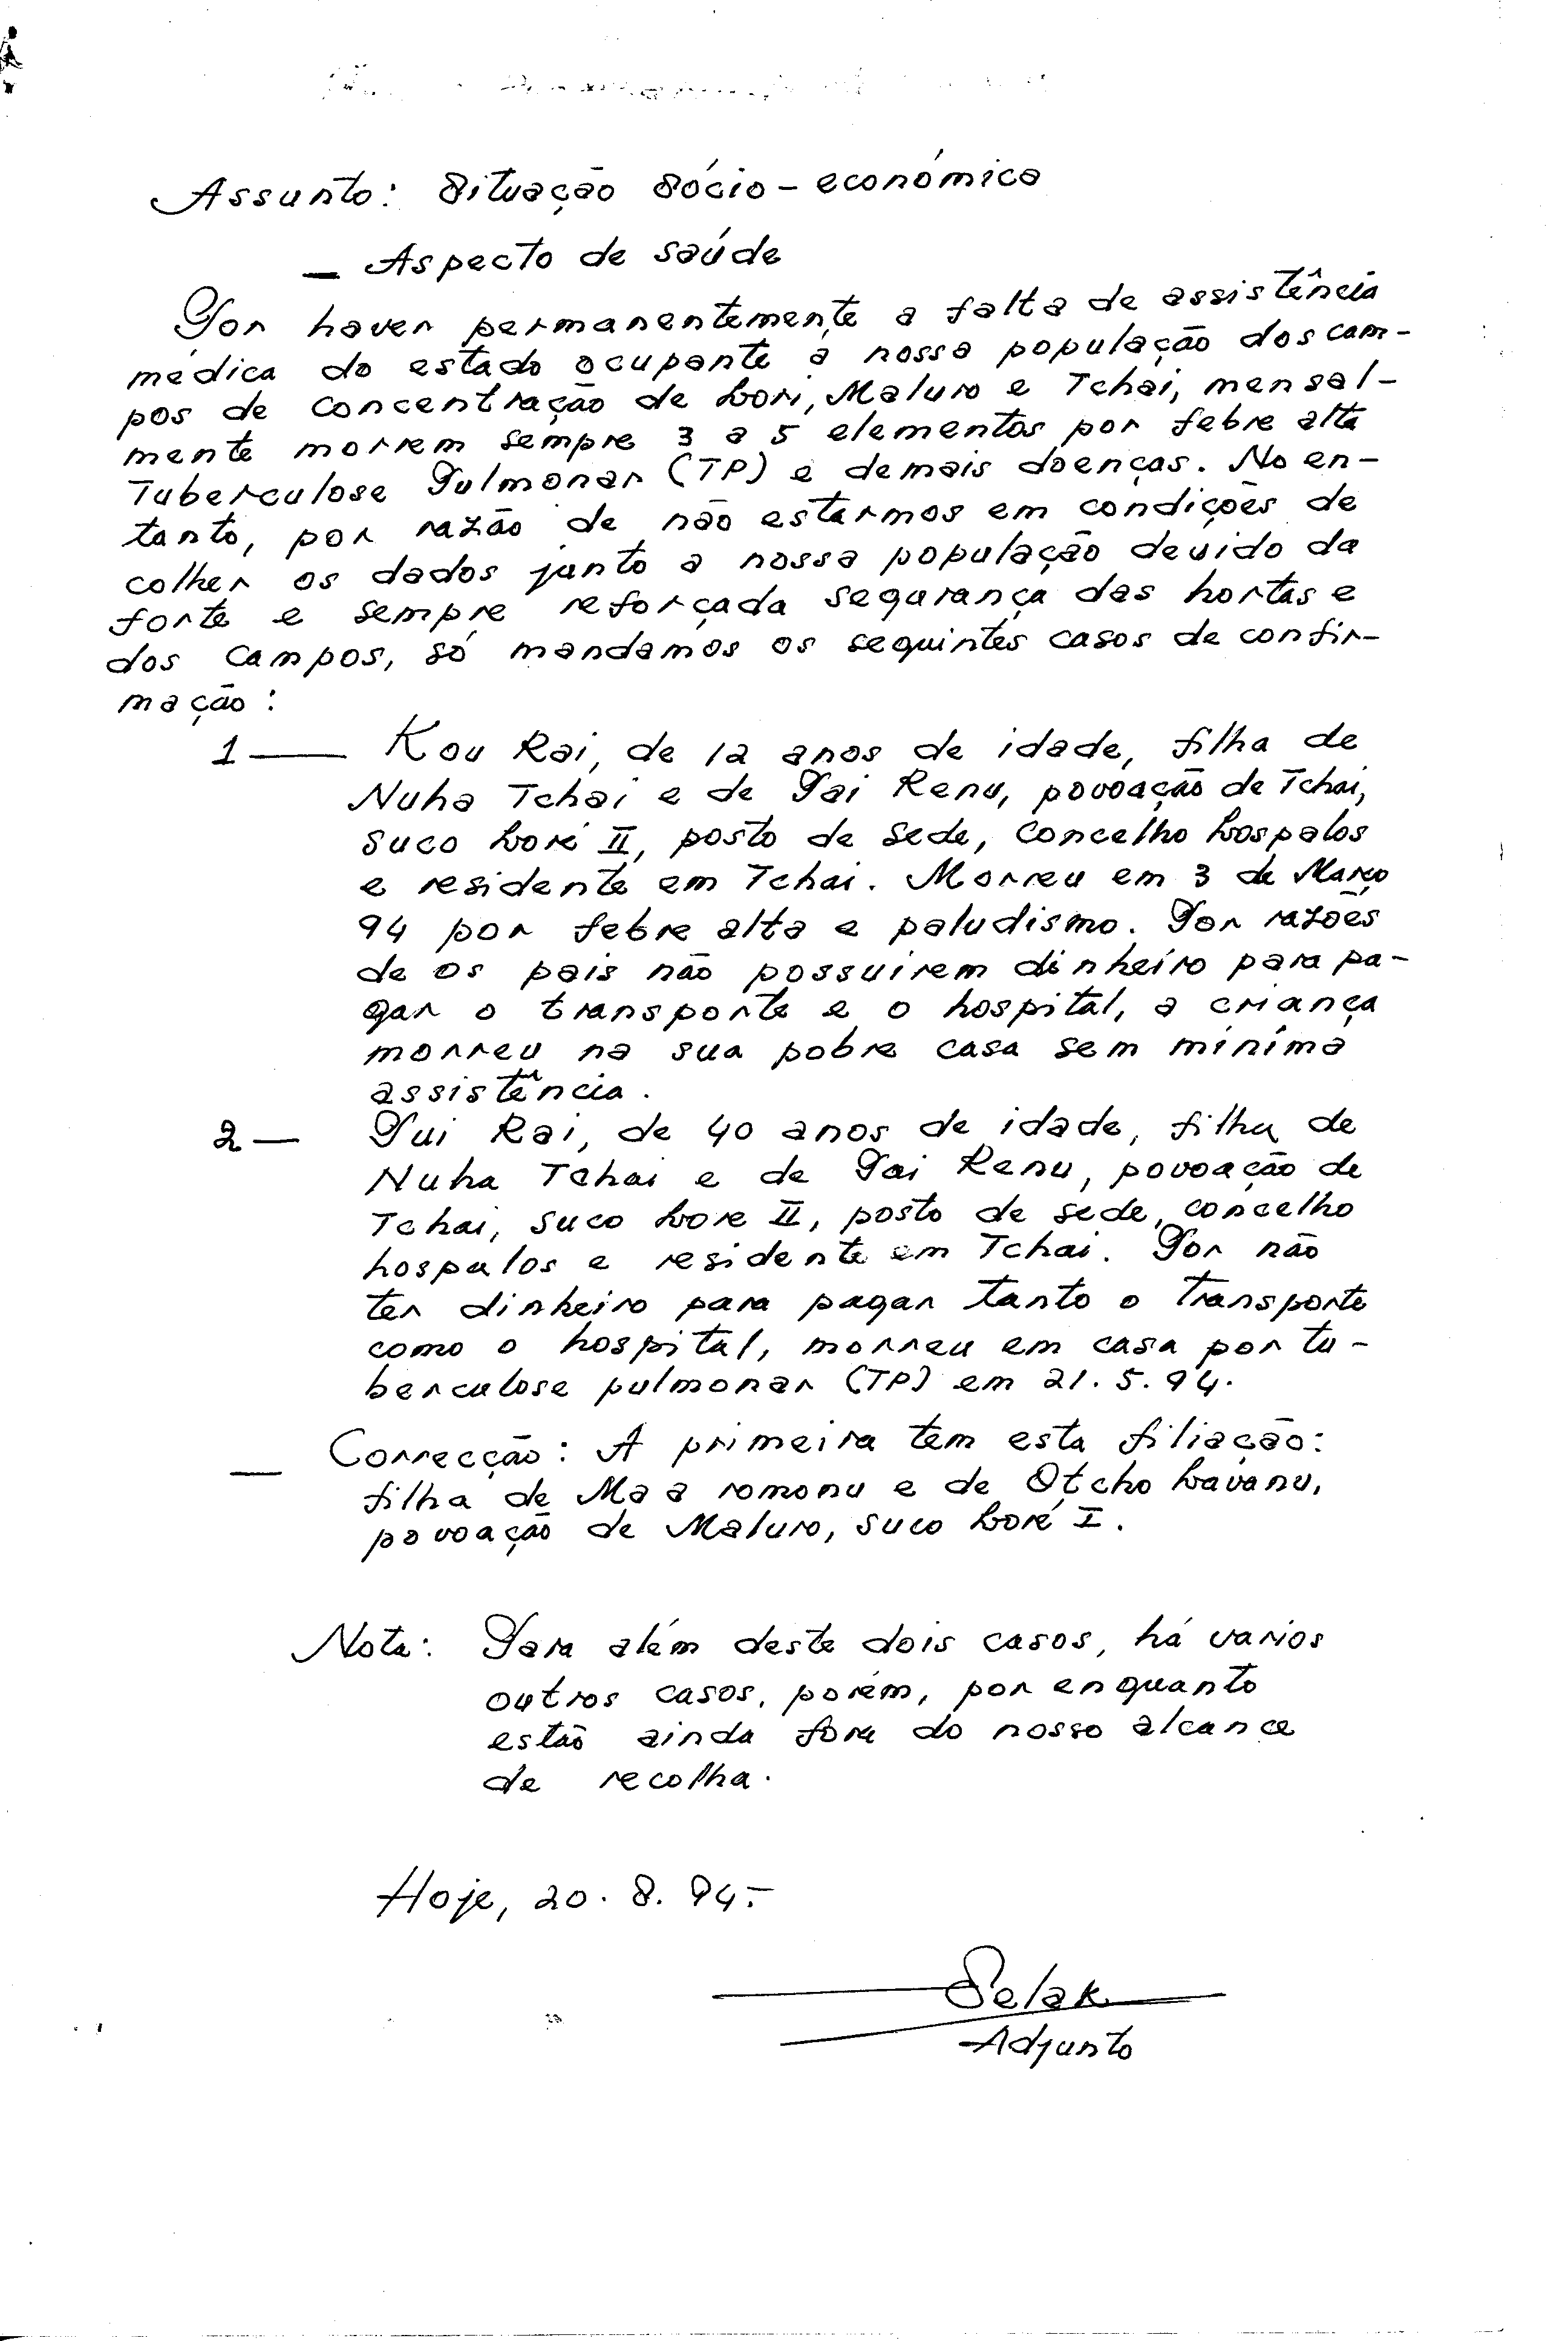 Assunto: Situação Sócio-económica
— Aspecto de saúde
Por haver permanentemente a falta de assistência
médica do estado ocupante à nossa população dos cam-
pos de concentração de Lori, Maluro e Tchai, mensal-
mente morrem sempre 3 a 5 elementos por febre alta
Tuberculose Pulmonar (TP) e demais doenças. No en-
tanto, por razão de não estarmos em condições de
colher os dados junto a nossa população devido da
forte e sempre reforçada segurança das hortas e
dos campos, só mandamos os seguintes casos de confir-
mação:
1 — Kou Rai, de 12 anos de idade, filha de
Nuha Tchai e de Pai Renu, povoação de Tchai,
suco Loré II, posto de sede, concelho Lospalos
e residente em Tchai. Morreu em 3 de Março
94 por febre alta e paludismo. Por razões
de os pais não possuirem dinheiro para pa-
gar o transporte e o hospital, a criança
morreu na sua pobre casa sem mínima
assistência.
2 — Pui Rai, de 40 anos de idade, filha de
Nuha Tchai e de Pai Renu, povoação de
Tchai, suco Lore II, posto de sede, concelho
hospalos e residente em Tchai. Por não
ter dinheiro para pagar tanto o transporte
como o hospital, morreu em casa por tu-
berculose pulmonar (TP) em 21.5.94.
— Correcção: A primeira tem esta filiação:
filha de Maa romonu e de Otcho Lavanu,
povoação de Maluro, suco Loré I.
Nota: Para além deste dois casos, há varios
outros casos, porém, por enquanto
estão ainda fora do nosso alcance
de recolha.
Hoje, 20.8.94.-
Selak
Adjunto